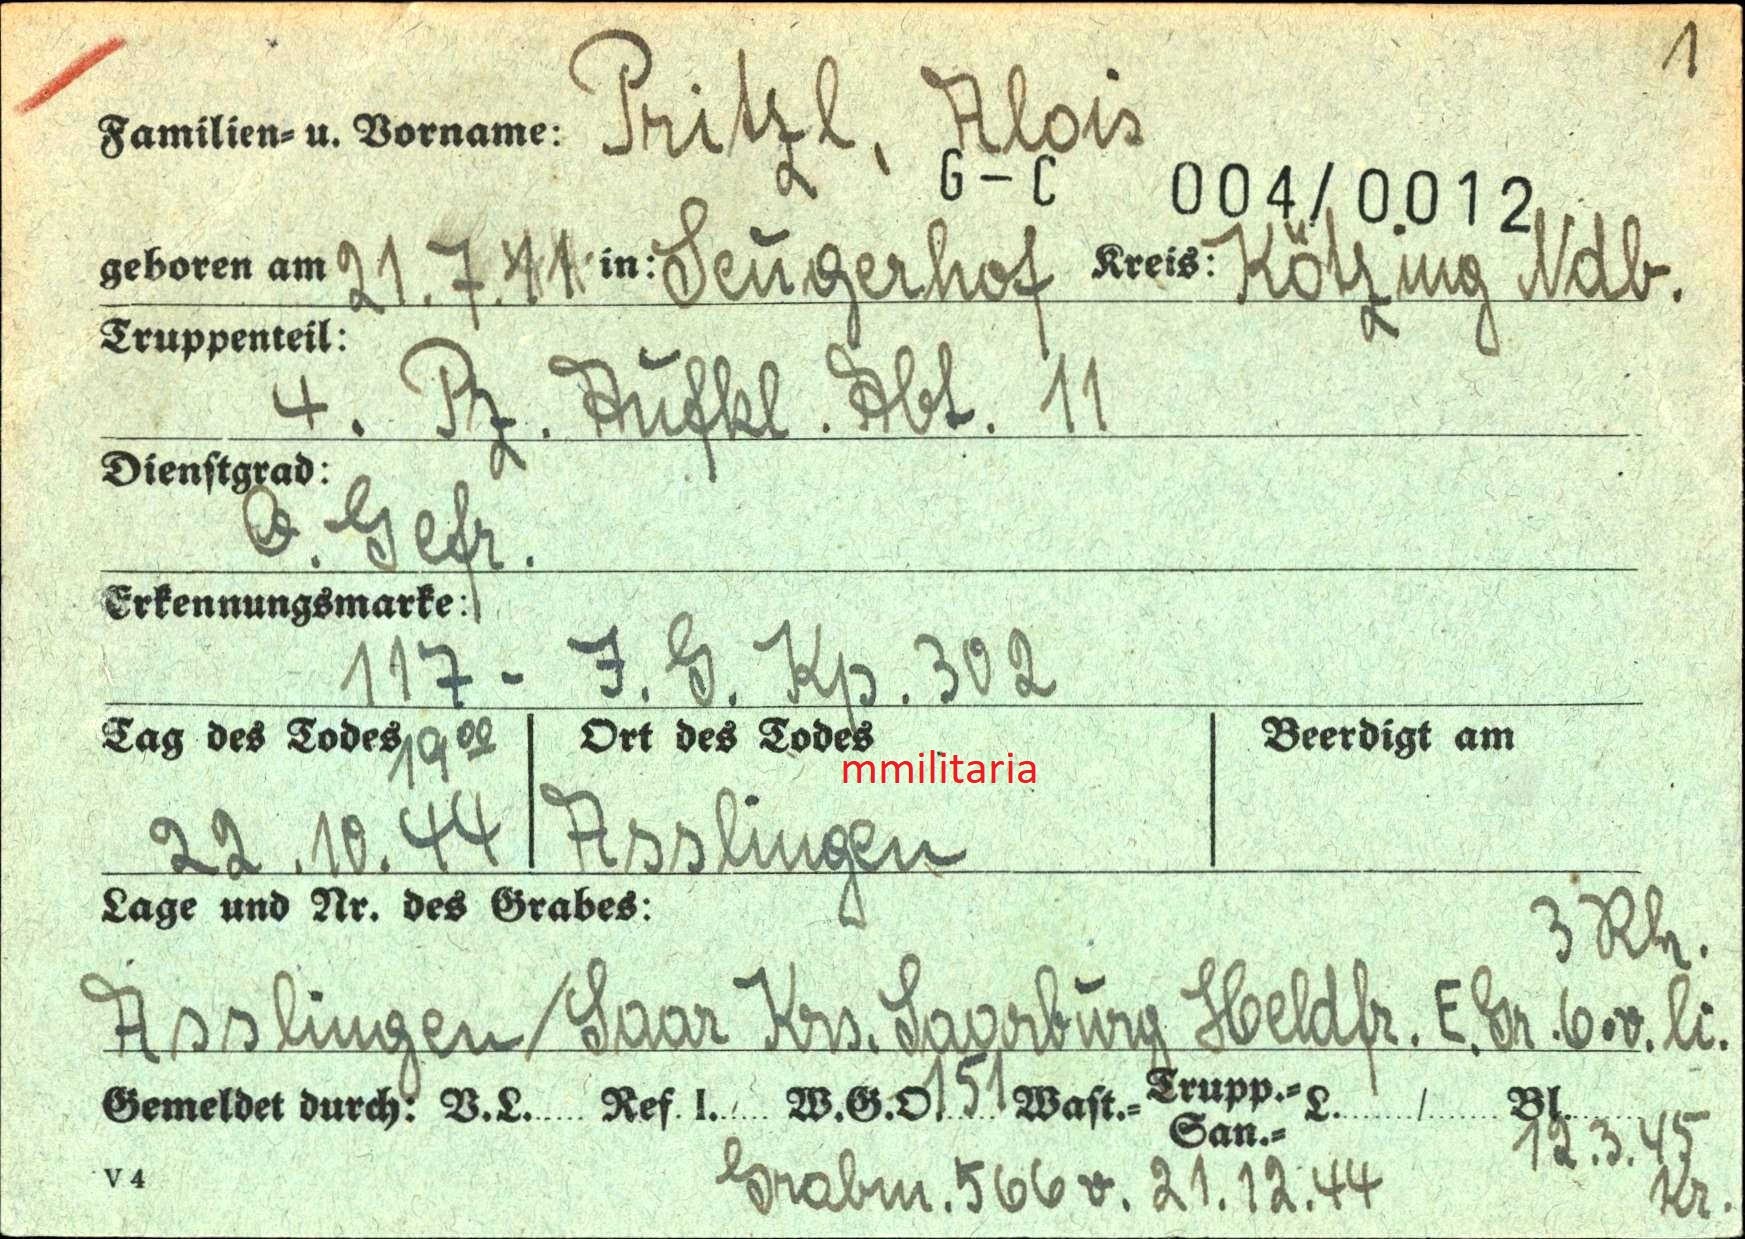 1
Familien- u. Vorname: Pritzl, Alois
G-C 004/0012
geboren am 21.7. in: Seugerhof Kreis: Kötzing Ndb.
Truppenteil:
4. Pz. Aufkl. Abt. 11
Dienstgrad:
O. Gefr.
Erkennungsmarke:
117 - J. G. Kp. 302
Tag des Todes 19⁰⁰ Ort des Todes Beerdigt am
mmilitaria
22.10.44 Asslingen
Lage und Nr. des Grabes:
3 Rh.
Asslingen/Saar Krs. Saarburg Heldfr. E. Gr. 6. v. li.
Gemeldet durch: V.L. Ref. I. W.G.O. 151 Wast.- Trupp.- San.- L. / Bl.
12.3.45
V 4 Grabm. 566 v. 21.12.44 Kr.